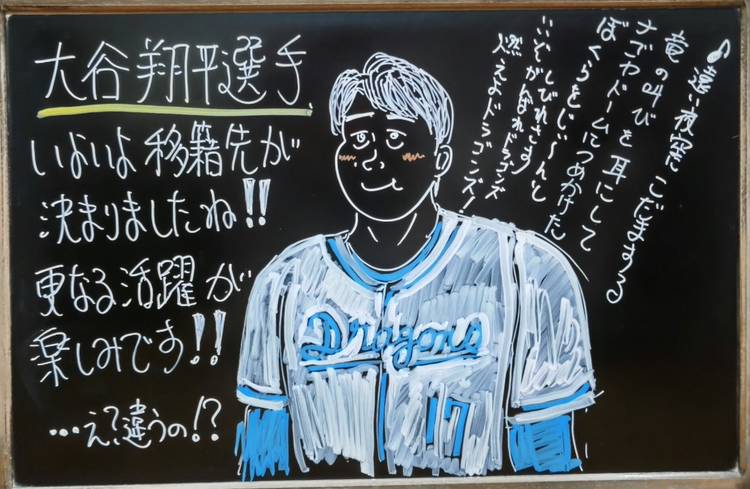 大谷翔平選手
いよいよ移籍先が
決まりましたね!!
更なる活躍が
楽しみです!!
…え?違うの!?
♪遠い夜空にこだまする
竜の叫びを耳にして
ナゴヤドームにつめかけた
ぼくらをじぃ〜んと
しびれさす
いいぞがんばれドラゴンズ
燃えよドラゴンズ!
Dragons
17